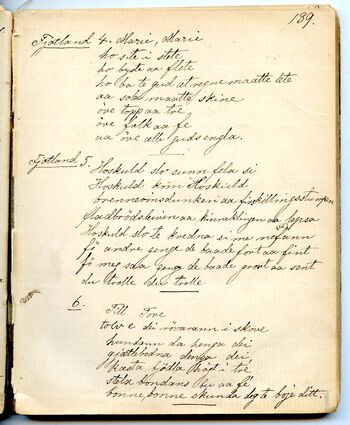 189.
Fjotland 4. Marie, Marie
ho site i stete
ho byste aa flete
ho ba te gud at regne maatte lete
aa sola maatte skine
øve topp aa tre
øve folk aa fe
aa øve alle guds engla.
Fjotland 5. Hoskuld slo sunnfela si
Hoskuld kom Hoskuld
brennevinsdunken aa
fladbrødsleiven aa kinneklingen aa lefsa
Hoskuld slo te kvedna si me nefann
få andre genge de baade fort aa fint
få meg saa genge de baade grovt aa sent
du trolle du trolle
6. Till Tove
tolv e dei røvarann i skove
hundann da henga dei
gjæthbodna denga dei,
kasta bjølla høgt i tre
stela bondans bu aa fe
bonne, bonne skunda deg te boje ditt.